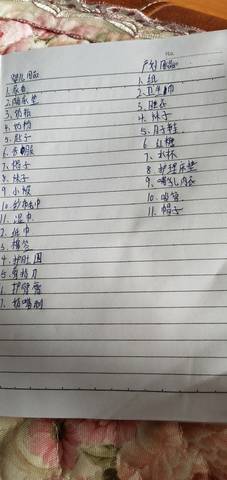 婴儿用品
1. 衣服
2. 隔尿垫
3. 奶瓶
4. 奶粉
5. 肚子
6. 衣服
7. 帽子
8. 袜子
9. 小被
10. 纱布巾
11. 湿巾
2. 纸巾
3. 棉签
4. 护肚围
5. 剪指刀
6. 护臀膏
7. 奶嘴刷
产妇用品
1. 纸
2. 卫生巾
3. 睡衣
4. 袜子
5. 月子鞋
6. 红糖
7. 水杯
8. 护理床垫
9. 哺乳内衣
10. 吸管
11. 帽子